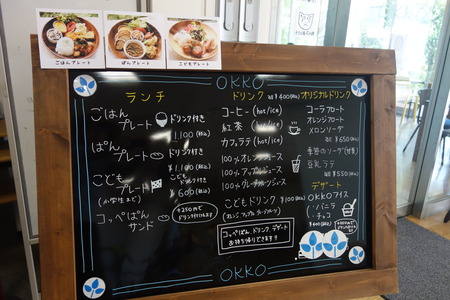 ごはんプレート
ぱんプレート
こどもプレート
OKKO
ランチ
ごはん
プレート ドリンク付き
1,100(税込)
ぱん
プレート ドリンク付き
¥1,100(税込)
こども
プレート ドリンク付き
(小学生まで) ¥600(税込)
コッペぱん
サンド
+250円で
ドリンク付けられます
ドリンク all ¥400(税込)
コーヒー (hot/ice)
紅茶 (hot/ice)
カフェラテ (hot/ice)
100%オレンジジュース
100%アップルジュース
100%グレープフルーツジュース
こどもドリンク ¥100(税込)
(オレンジ・アップル・グレープフルーツ)
コッペぱん、ドリンク、デザート
お持ち帰りできます!!
オリジナルドリンク
コーラフロート
オレンジフロート
メロンソーダ
all ¥650(税込)
季節のソーダ
豆乳ラテ
all ¥550(税込)
デザート
OKKOアイス
・バニラ
・チョコ
¥400(税込)
OKKO